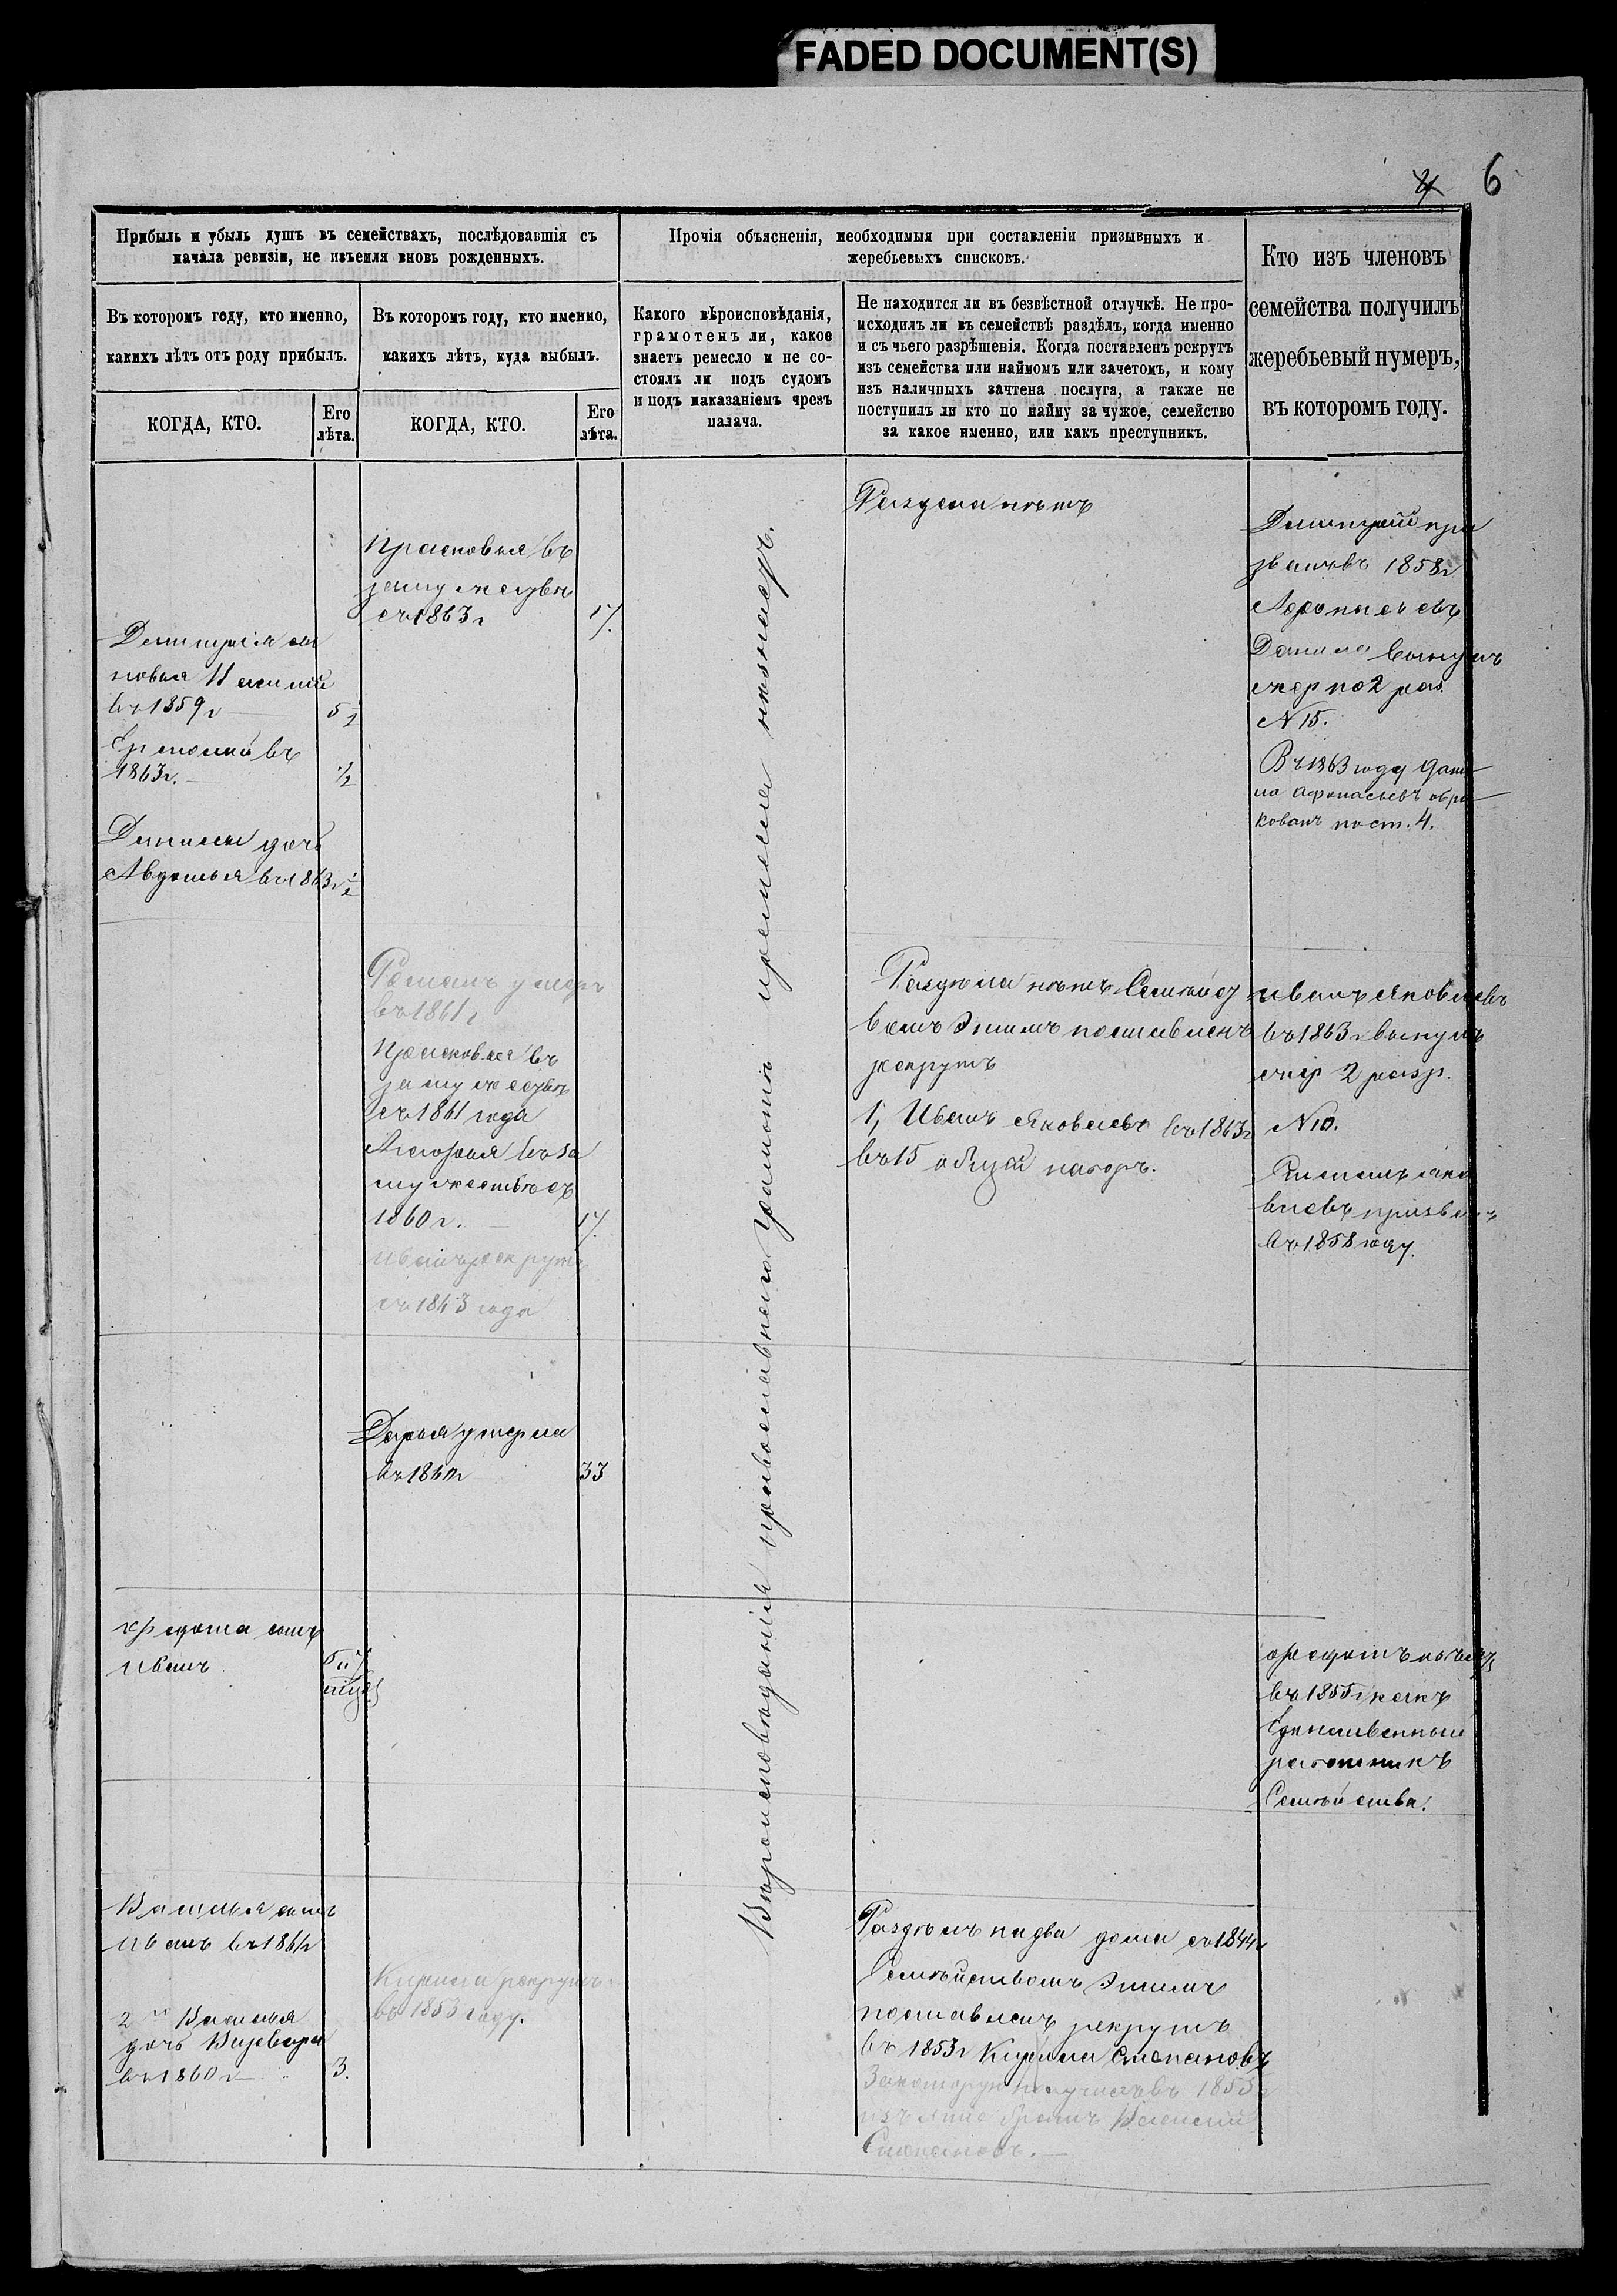 FADED DOCUMENT(S)
4 6
Прибыль и убыль душъ въ семействахъ, послѣдовавшія съ
начала ревизіи, не изъемля вновь рожденныхъ.
Въ которомъ году, кто именно,
какихъ лѣтъ отъ роду прибылъ.
КОГДА, КТО.
Его
лѣта.
Въ которомъ году, кто именно,
какихъ лѣтъ, куда выбылъ.
КОГДА, КТО.
Его
лѣта.
Прочія объясненія, необходимыя при составленіи призывныхъ и
жеребьевыхъ списковъ.
Какого вѣроисповѣданія,
грамотенъ ли, какое
знаетъ ремесло и не со-
стоялъ ли подъ судомъ
и подъ наказаніемъ чрезъ
палача.
Не находится ли въ безвѣстной отлучкѣ. Не про-
исходилъ ли въ семействѣ раздѣлъ, когда именно
и съ чьего разрѣшенія. Когда поставленъ рекрутъ
изъ семейства или наймомъ или зачетомъ, и кому
изъ наличныхъ зачтена послуга, а также не
поступилъ ли кто по найму за чужое, семейство
за какое именно, или какъ преступникъ.
Кто изъ членовъ
семейства получилъ
жеребьевый нумеръ,
въ которомъ году.
Дмитрія сы
новья
въ 1859 г 5 1/2
въ
1863 г. 1/2
Данилы дочь
Авдотья въ 1863 г 1/2
Прасковья въ
замужествѣ
съ 1863 г 17.
Раздела нѣтъ
Дмитрій при
званъ въ 1858 г
Афонасьевъ
Данила вынулъ
жер по 2 раз.
N 15.
Въ 1863 году Дани-
ла Афонасьевъ обра-
кованъ по ст. 4.
Вѣроисповѣданія православнаго грамотѣ и ремесла незнаетъ.
Романъ умеръ
въ 1861 г
Прасковья въ
замужествѣ
съ 1861 года
въ за
мужествѣ съ
1860 г. 17.
Иванъ рекрутъ
съ 1863 года
Раздѣла нѣтъ Семѣйст
вомъ Этимъ поставленъ
рекрутъ
1, Иванъ Яковлевъ въ 1863 г
въ 15 общій наборъ.
Иванъ Яковлевъ
въ 1863 г вынулъ
жер 2 разр.
N 10.
Яко
влевъ призванъ
въ 1858 году.
Дарья умерла
въ 1860 г 33
Ѳедота сынъ
Иванъ
Ѳедотъ
въ 1855 г какъ
Единственный
работникъ
Семѣйства.
Василья сынъ
Иванъ въ 1861 г
2й Василья
дочь Варвара
въ 1860 г 3.
Кирила рекрутъ
въ 1853 году.
Раздѣлъ на два дома съ 1844 г
Семѣйствомъ Этимъ
поставленъ рекрутъ
въ 1853 г Кирила Степановъ
За которую получилъ въ 1853 г
братъ Василій
Степановъ.